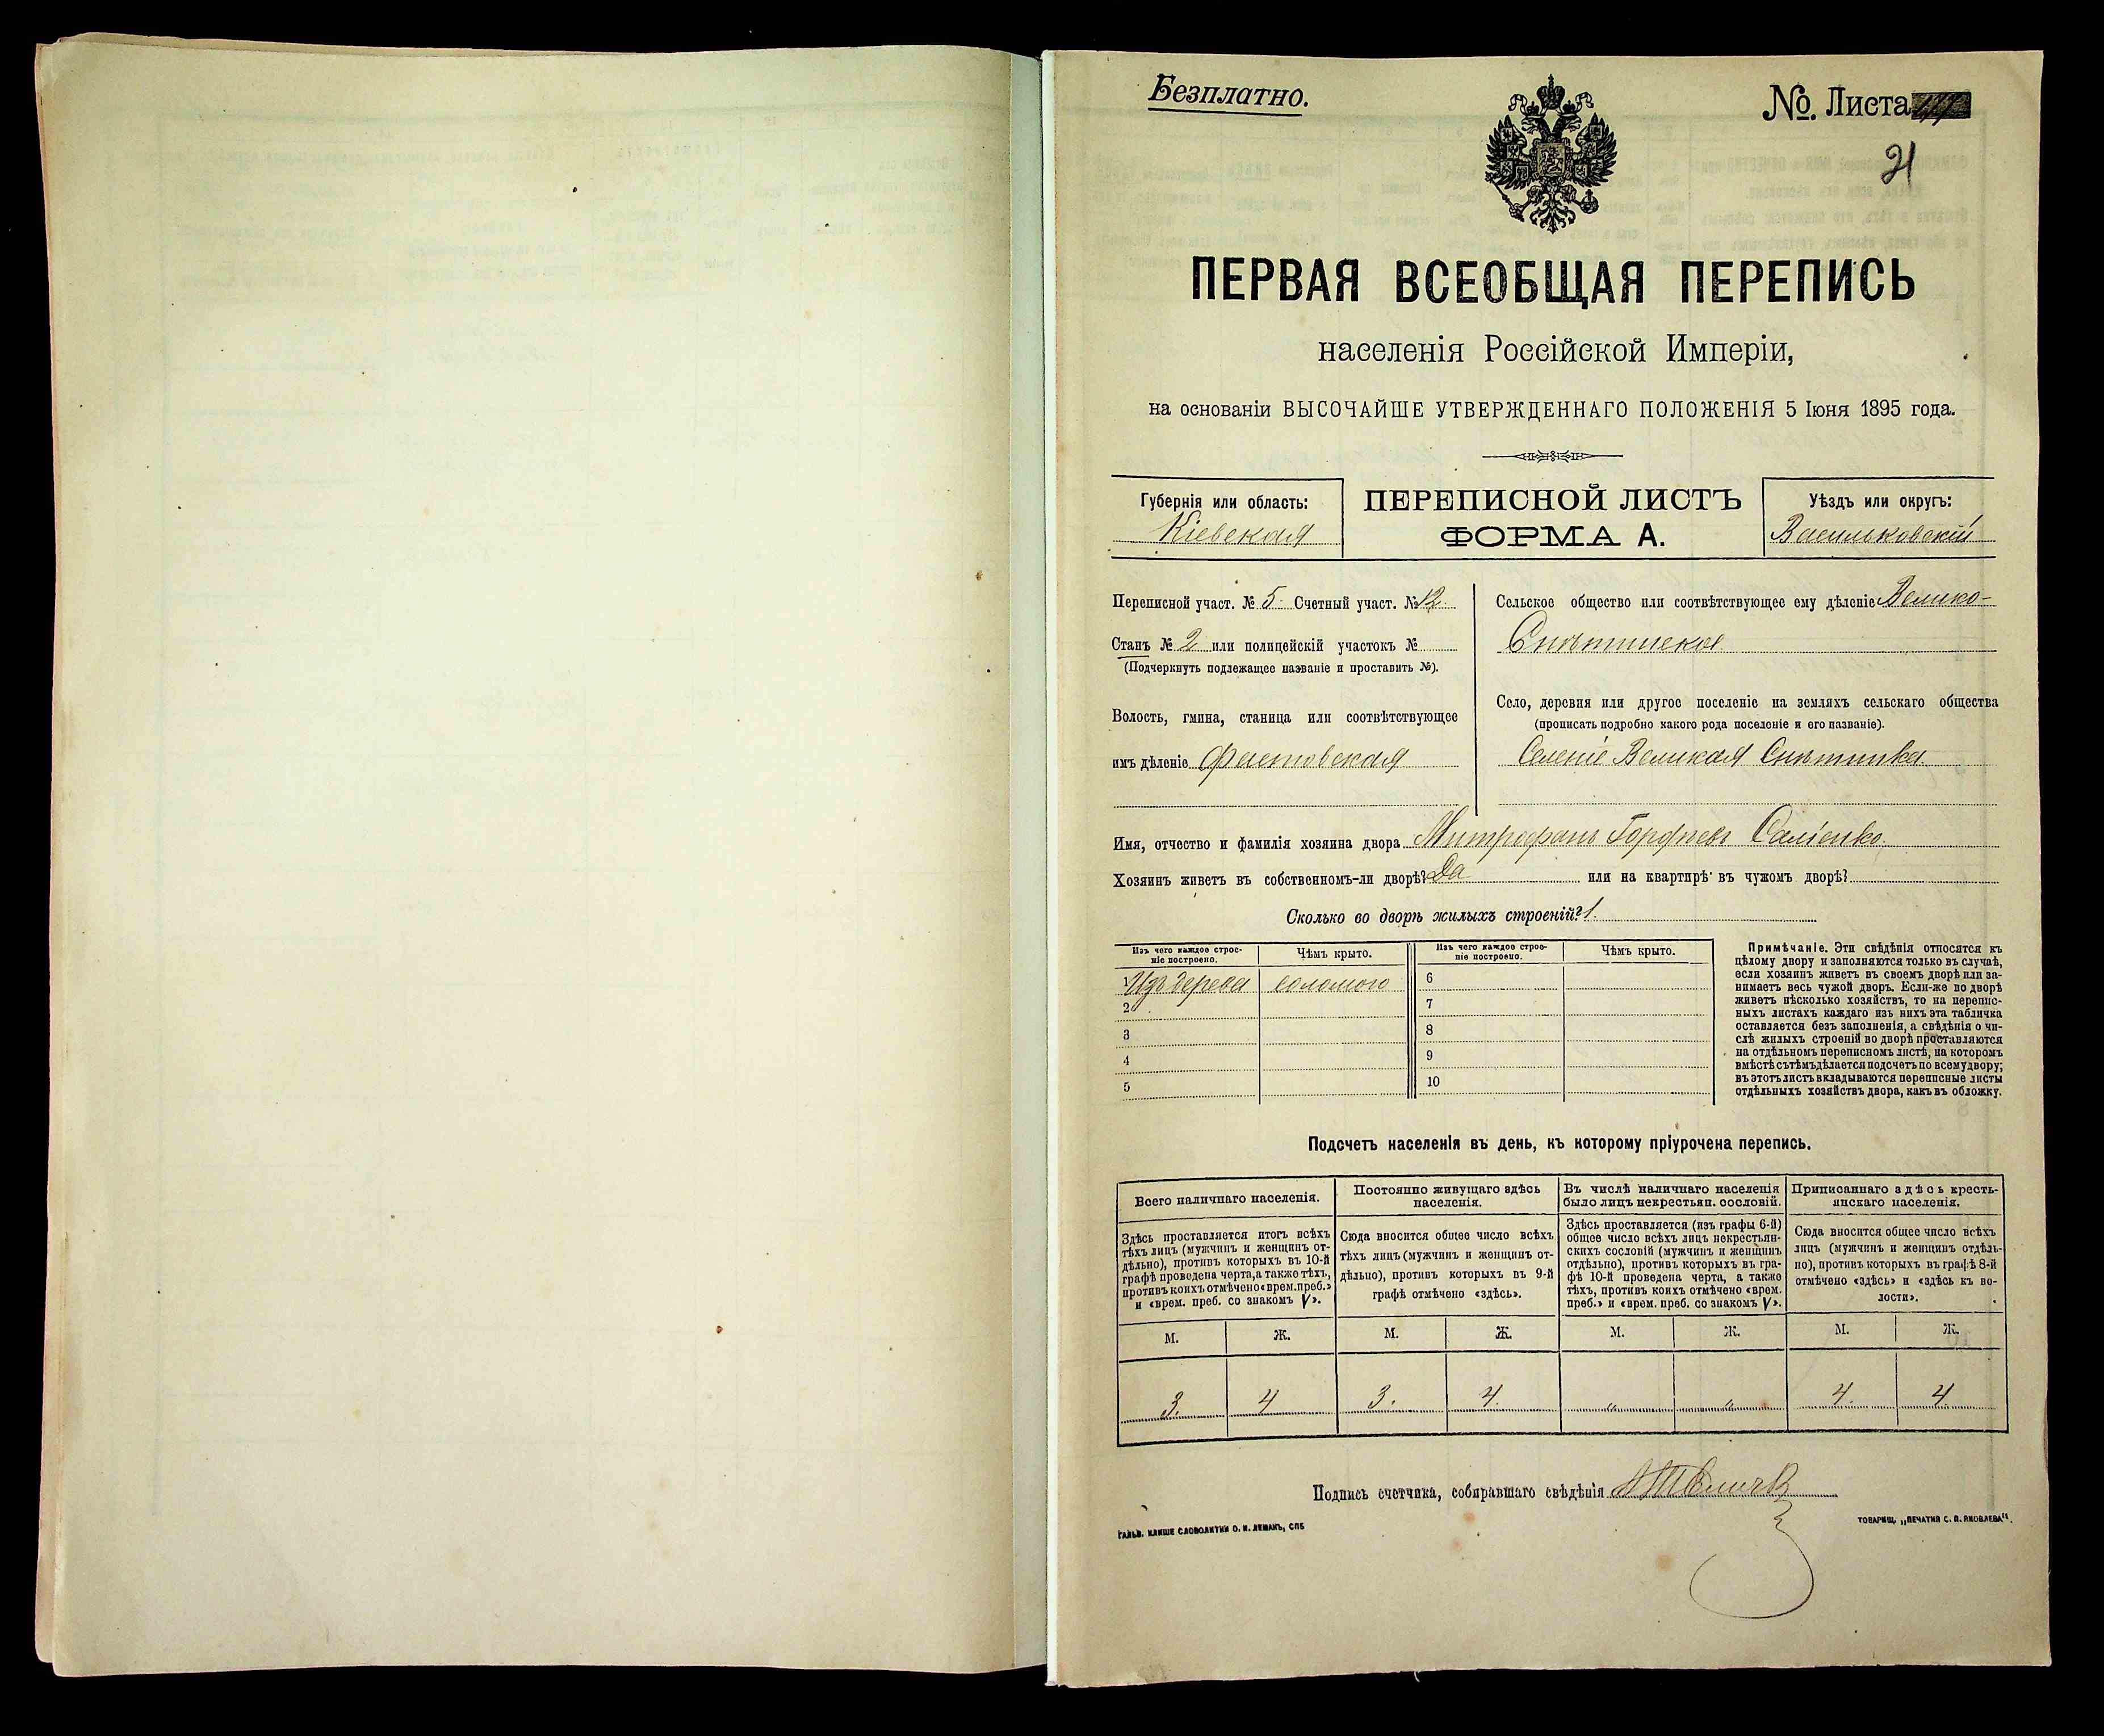 Безплатно.
№. Листа
21
ПЕРВАЯ ВСЕОБЩАЯ ПЕРЕПИСЬ
населенія Россійской Имперіи,
на основаніи ВЫСОЧАЙШЕ УТВЕРЖДЕННАГО ПОЛОЖЕНІЯ 5 Іюня 1895 года.
Губернія или область:
Кіевская
ПЕРЕПИСНОЙ ЛИСТЪ
ФОРМА А.
Уѣздъ или округъ:
Васильковскій
Переписной участ. № 5. Счетный участ. № 12.
Станъ № 2 или полицейскій участокъ №
(Подчеркнуть подлежащее названіе и проставить №).
Волость, гмина, станица или соотвѣтствующее
имъ дѣленіе Фастовская
Сельское общество или соотвѣтствующее ему дѣленіе Велико-
Снѣтинское
Село, деревня или другое поселеніе на земляхъ сельскаго общества
(прописать подробно какого рода поселеніе и его названіе).
Селеніе Великая Снѣтинка
Имя, отчество и фамилія хозяина двора Митрофанъ Горфіевъ Саліенко.
Хозяинъ живетъ въ собственномъ-ли дворѣ? Да или на квартирѣ въ чужомъ дворѣ?
Сколько во дворѣ жилыхъ строеній? 1.
Изъ чего каждое строе-
ніе построено.
Чѣмъ крыто.
Изъ чего каждое строе-
ніе построено.
Чѣмъ крыто.
Изъ дерева соломою 6
2 7
3 8
4 9
5 10
Примѣчаніе. Эти свѣдѣнія относятся къ
цѣлому двору и заполняются только въ случаѣ,
если хозяинъ живетъ въ своемъ дворѣ или за-
нимаетъ весь чужой дворъ. Если-же во дворѣ
живетъ нѣсколько хозяйствъ, то на перепис-
ныхъ листахъ каждаго изъ нихъ эта табличка
оставляется безъ заполненія, а свѣдѣнія о чи-
слѣ жилыхъ строеній во дворѣ проставляются
на отдѣльномъ переписномъ листѣ, на которомъ
вмѣстѣ съ тѣмъ дѣлается подсчетъ по всему двору;
въ этотъ листъ вкладываются переписные листы
отдѣльныхъ хозяйствъ двора, какъ въ обложку.
Подсчетъ населенія въ день, къ которому пріурочена перепись.
Всего наличнаго населенія.
Здѣсь проставляется итогъ всѣхъ
тѣхъ лицъ (мужчинъ и женщинъ от-
дѣльно), противъ которыхъ въ 10-й
графѣ проведена черта, а также тѣхъ,
противъ коихъ отмѣчено «врем. преб.»
и «врем. преб. со знакомъ V».
Постоянно живущаго здѣсь
населенія.
Сюда вносится общее число всѣхъ
тѣхъ лицъ (мужчинъ и женщинъ от-
дѣльно), противъ которыхъ въ 9-й
графѣ отмѣчено «здѣсь».
Въ числѣ наличнаго населенія
было лицъ некрестьян. сословій.
Здѣсь проставляется (изъ графы 6-й)
общее число всѣхъ лицъ некрестьян-
скихъ сословій (мужчинъ и женщинъ
отдѣльно), противъ которыхъ въ гра-
фѣ 10-й проведена черта, а также
тѣхъ, противъ коихъ отмѣчено «врем.
преб.» и «врем. преб. со знакомъ V».
Приписаннаго здѣсь кресть-
янскаго населенія.
Сюда вносится общее число всѣхъ
лицъ (мужчинъ и женщинъ отдѣль-
но), противъ которыхъ въ графѣ 8-й
отмѣчено «здѣсь» и «здѣсь къ во-
лости».
М. Ж. М. Ж. М. Ж. М. Ж.
3. 4 3. 4. " " 4. 4.
Подпись счетчика, собиравшаго свѣдѣнія
ГАЛЬВ. КЛИШЕ СЛОВОЛИТНИ О. И. ЛЕМАНЪ, СПБ
ТОВАРИЩ. „ПЕЧАТНЯ С. П. ЯКОВЛЕВА".